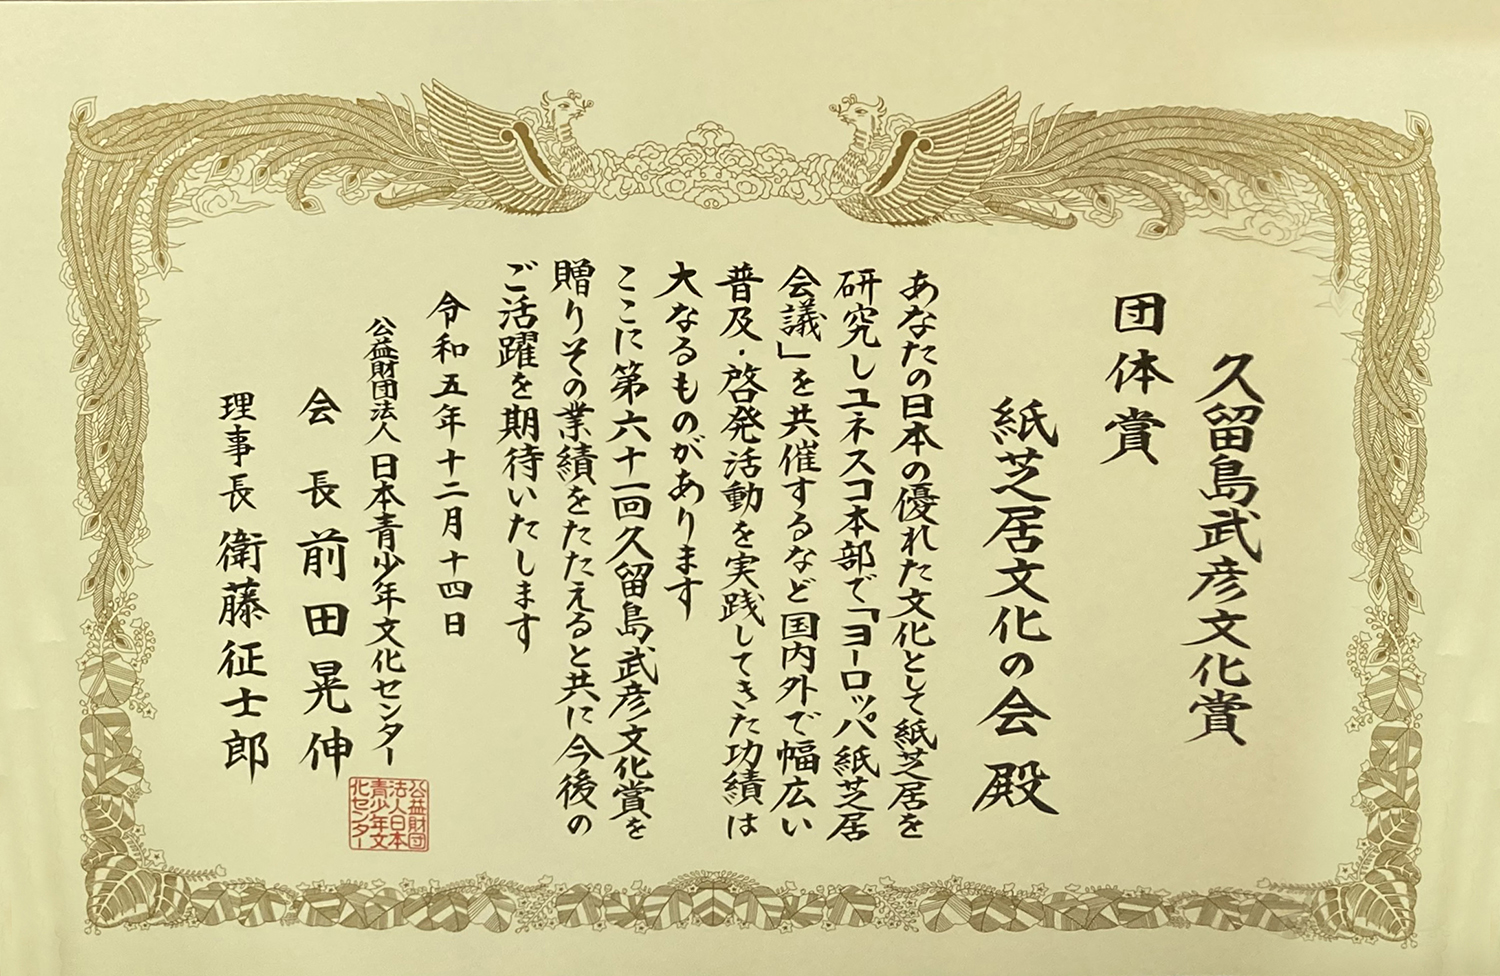 久留島武彦文化賞
団体賞
紙芝居文化の会 殿
あなたの日本の優れた文化として紙芝居を
研究しユネスコ本部で「ヨーロッパ紙芝居
会議」を共催するなど国内外で幅広い
普及・啓発活動を実践してきた功績は
大なるものがあります
ここに第六十一回久留島武彦文化賞を
贈りその業績をたたえると共に今後の
ご活躍を期待いたします
令和五年十二月十四日
公益財団法人 日本青少年文化センター
会長 前田晃伸
理事長 衛藤征士郎
公益財団
法人日本
青少年文
化センター